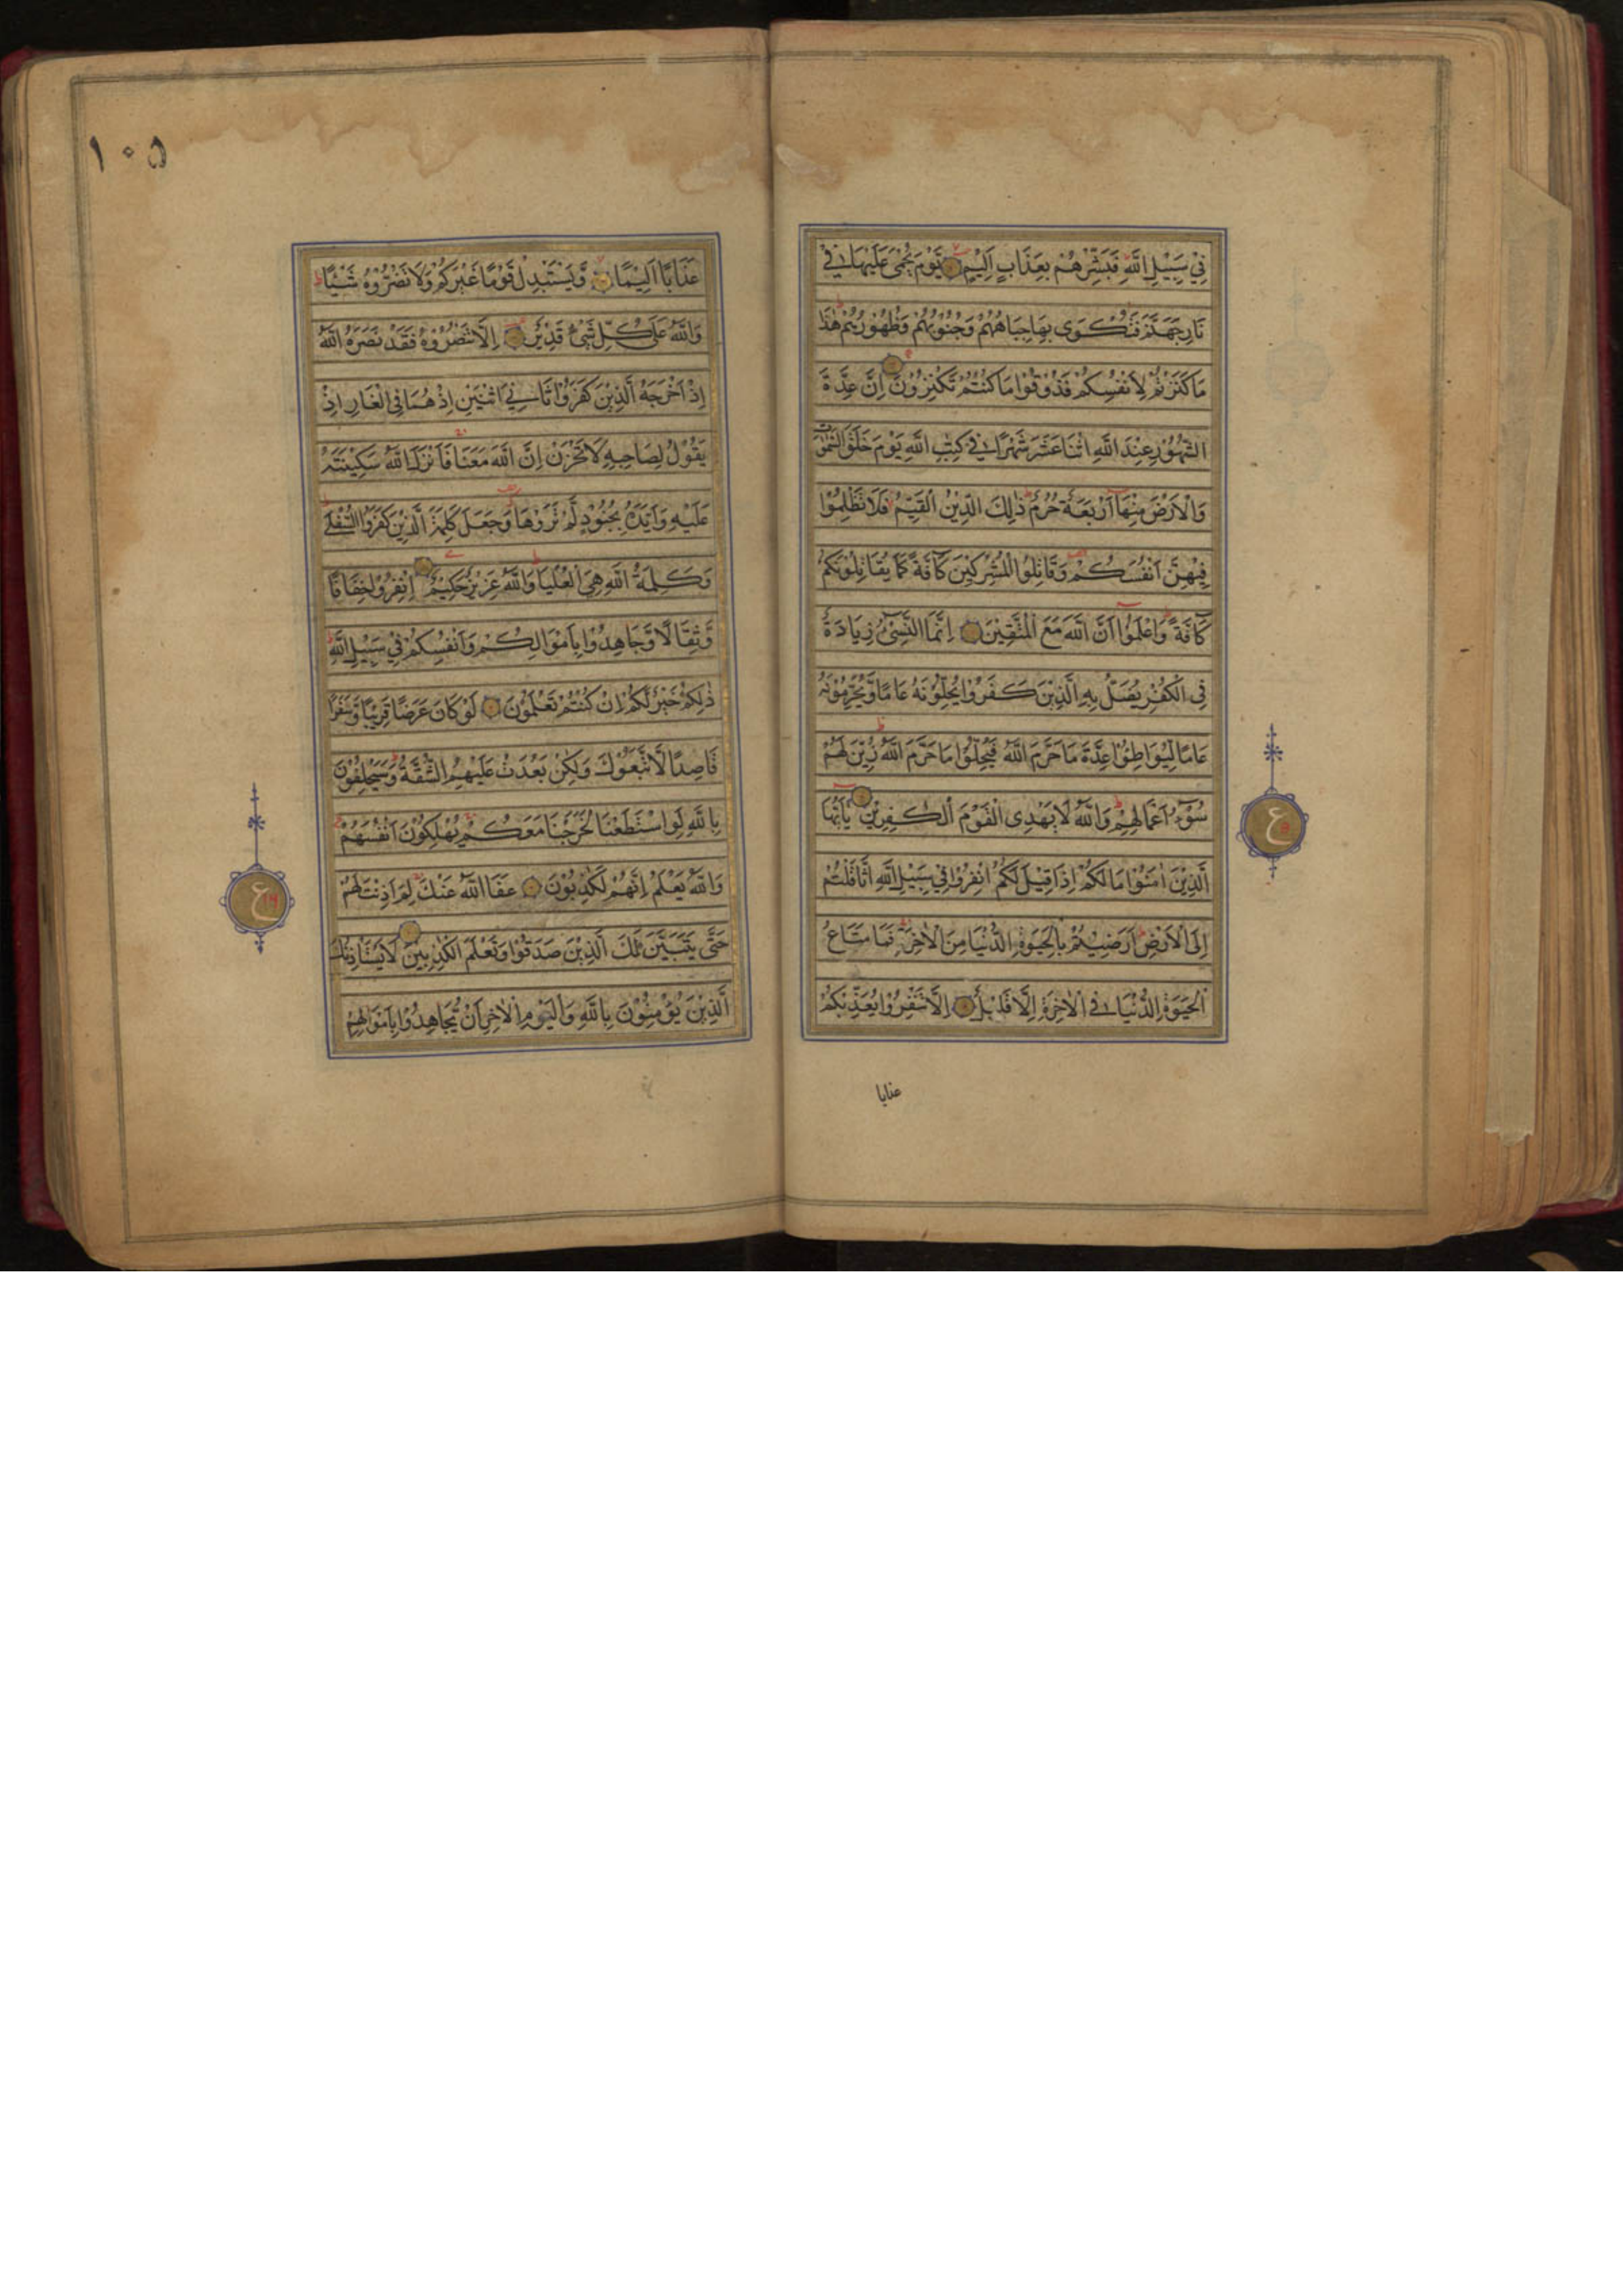 فِيْ سَبِيْلِ اللّٰهِ فَبَشِّرْهُمْ بِعَذَابٍ اَلِيْمٍ يَّوْمَ يُحْمٰى عَلَيْهَا فِيْ
نَارِ جَهَنَّمَ فَتُكْوٰى بِهَا جِبَاهُهُمْ وَجُنُوْبُهُمْ وَظُهُوْرُهُمْ هٰذَا
مَا كَنَزْتُمْ لِاَنْفُسِكُمْ فَذُوْقُوْا مَا كُنْتُمْ تَكْنِزُوْنَ اِنَّ عِدَّةَ
الشُّهُوْرِ عِنْدَ اللّٰهِ اثْنَا عَشَرَ شَهْرًا فِيْ كِتٰبِ اللّٰهِ يَوْمَ خَلَقَ السَّمٰوٰتِ
وَالْاَرْضَ مِنْهَا اَرْبَعَةٌ حُرُمٌ ذٰلِكَ الدِّيْنُ الْقَيِّمُ فَلَا تَظْلِمُوْا
فِيْهِنَّ اَنْفُسَكُمْ وَقَاتِلُوا الْمُشْرِكِيْنَ كَآفَّةً كَمَا يُقَاتِلُوْنَكُمْ
كَآفَّةً وَاعْلَمُوْا اَنَّ اللّٰهَ مَعَ الْمُتَّقِيْنَ اِنَّمَا النَّسِيْٓءُ زِيَادَةٌ
فِى الْكُفْرِ يُضَلُّ بِهِ الَّذِيْنَ كَفَرُوْا يُحِلُّوْنَهٗ عَامًا وَّيُحَرِّمُوْنَهٗ
عَامًا لِّيُوَاطِئُوْا عِدَّةَ مَا حَرَّمَ اللّٰهُ فَيُحِلُّوْا مَا حَرَّمَ اللّٰهُ زُيِّنَ لَهُمْ
سُوْٓءُ اَعْمَالِهِمْ وَاللّٰهُ لَا يَهْدِى الْقَوْمَ الْكٰفِرِيْنَ يٰٓاَيُّهَا
الَّذِيْنَ اٰمَنُوْا مَا لَكُمْ اِذَا قِيْلَ لَكُمُ انْفِرُوْا فِيْ سَبِيْلِ اللّٰهِ اثَّاقَلْتُمْ
اِلَى الْاَرْضِ اَرَضِيْتُمْ بِالْحَيٰوةِ الدُّنْيَا مِنَ الْاٰخِرَةِ فَمَا مَتَاعُ
الْحَيٰوةِ الدُّنْيَا فِى الْاٰخِرَةِ اِلَّا قَلِيْلٌ اِلَّا تَنْفِرُوْا يُعَذِّبْكُمْ
عذابا
ع
۱۰۵
عَذَابًا اَلِيْمًا وَّيَسْتَبْدِلْ قَوْمًا غَيْرَكُمْ وَلَا تَضُرُّوْهُ شَيْئًا
وَاللّٰهُ عَلٰى كُلِّ شَيْءٍ قَدِيْرٌ اِلَّا تَنْصُرُوْهُ فَقَدْ نَصَرَهُ اللّٰهُ
اِذْ اَخْرَجَهُ الَّذِيْنَ كَفَرُوْا ثَانِيَ اثْنَيْنِ اِذْ هُمَا فِى الْغَارِ اِذْ
يَقُوْلُ لِصَاحِبِهٖ لَا تَحْزَنْ اِنَّ اللّٰهَ مَعَنَا فَاَنْزَلَ اللّٰهُ سَكِيْنَتَهٗ
عَلَيْهِ وَاَيَّدَهٗ بِجُنُوْدٍ لَّمْ تَرَوْهَا وَجَعَلَ كَلِمَةَ الَّذِيْنَ كَفَرُوا السُّفْلٰى
وَكَلِمَةُ اللّٰهِ هِيَ الْعُلْيَا وَاللّٰهُ عَزِيْزٌ حَكِيْمٌ اِنْفِرُوْا خِفَافًا
وَّثِقَالًا وَّجَاهِدُوْا بِاَمْوَالِكُمْ وَاَنْفُسِكُمْ فِيْ سَبِيْلِ اللّٰهِ
ذٰلِكُمْ خَيْرٌ لَّكُمْ اِنْ كُنْتُمْ تَعْلَمُوْنَ لَوْ كَانَ عَرَضًا قَرِيْبًا وَّسَفَرًا
قَاصِدًا لَّاتَّبَعُوْكَ وَلٰكِنْ بَعُدَتْ عَلَيْهِمُ الشُّقَّةُ وَسَيَحْلِفُوْنَ
بِاللّٰهِ لَوِ اسْتَطَعْنَا لَخَرَجْنَا مَعَكُمْ يُهْلِكُوْنَ اَنْفُسَهُمْ
وَاللّٰهُ يَعْلَمُ اِنَّهُمْ لَكٰذِبُوْنَ عَفَا اللّٰهُ عَنْكَ لِمَ اَذِنْتَ لَهُمْ
حَتّٰى يَتَبَيَّنَ لَكَ الَّذِيْنَ صَدَقُوْا وَتَعْلَمَ الْكٰذِبِيْنَ لَا يَسْتَأْذِنُكَ
الَّذِيْنَ يُؤْمِنُوْنَ بِاللّٰهِ وَالْيَوْمِ الْاٰخِرِ اَنْ يُّجَاهِدُوْا بِاَمْوَالِهِمْ
ع